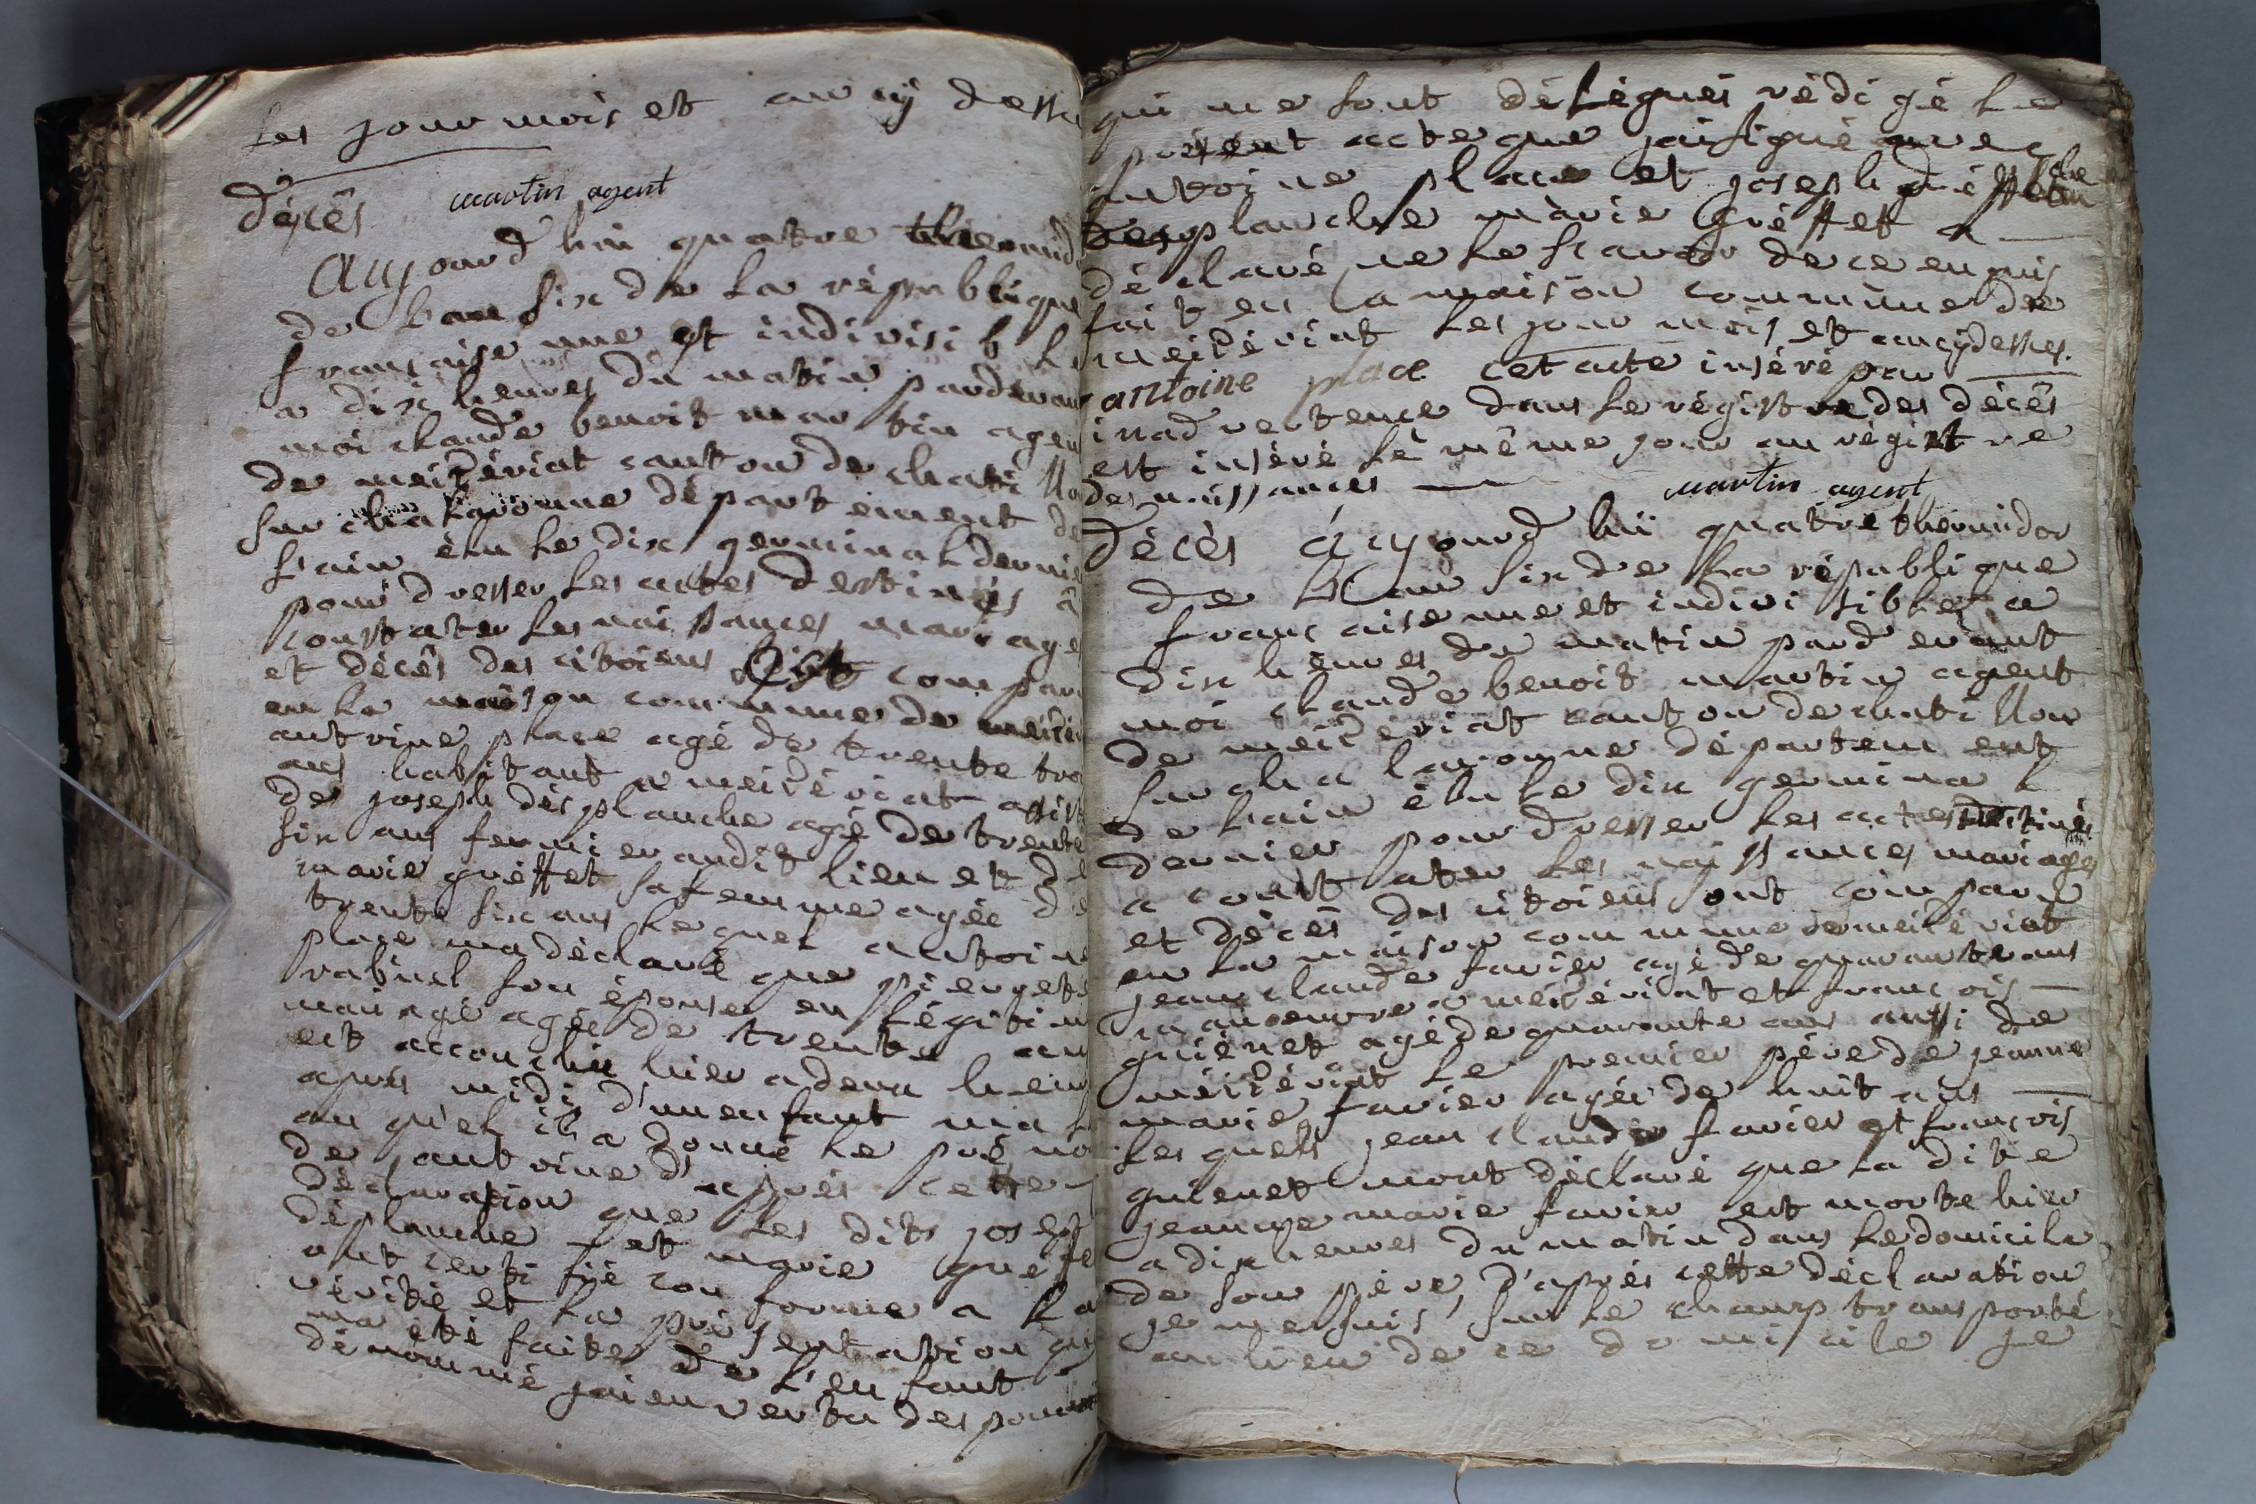 les jour mois et an cÿ dessu
décès martin agent
aujourd'hui quatre thermid
de l'an six de la république
française une et indivisible
a dix heures du matin pardevan
moi claude benoit martin agen
de meizériat canton de chatillo
sur chalaronne département de
l'ain élu le dix germinal dernie
pour dresser les actes destinés a
constater les naissances mariage
et décès des citoiens est compar
en la maison commune de meizéri
antoine place agé de trente tro
ans habitant a meizériat assist
de joseph désplanche agé de trente
six ans fermier audit lieu et de
marie gréffet sa femme agée de
trente six ans lequel antoine
place ma déclaré que pierrete
rabuel son épouse en légitim
mariage agée de trente an
est accouchée hier a deux heur
aprés midi d'un enfant mal
au quel il a donné le préno
de antoine d'aprés cette
déclaration que les dits josep
déplanche et marie gréfe
ont certifié conforme a la
vérité et la présentation qui
ma été faite de l'enfant
dénommé jai en vertu des pouvoir
qui me sont délégués rédigé le
présent acte que jai signé avec
antoine place et joseph
desplanche marie gréffet a
déclaré ne le scavoir de ce enquis
fait en la maison commune de
meizériat les jour mois et an cÿ dessus.
antoine place cet acte inséré par
inadvertence dans le régistre des décès
est inséré le même jour au régistre
des naissances martin agent
décès aujourd'hui quatre thermidor
de l'an six de la république
française une et indivisible a
dix heures du matin pardevant
moi claude benoit martin agent
de meizériat canton de chatillon
sur chalaronne département
de l'ain élu le dix germinal
dernier pour dresser les actes destinés
a constater les naissances mariages
et décès des citoiens ont comparu
en la maison commune de meizériat
jean claude favier agé de quarante ans
manoeuvre a meizériat et françois
guienet agé de quarante ans aussi de
meizériat le premier père de jeanne
marie favier agée de huit ans
lesquels jean claude favier et françois
guienet mont déclaré que la dite
jeanne marie favier est morte hier
a dix heures du matin dans le domicile
de son père, d'aprés cette déclaration
je me suis sur le champ transporté
au lieu de ce domicile je